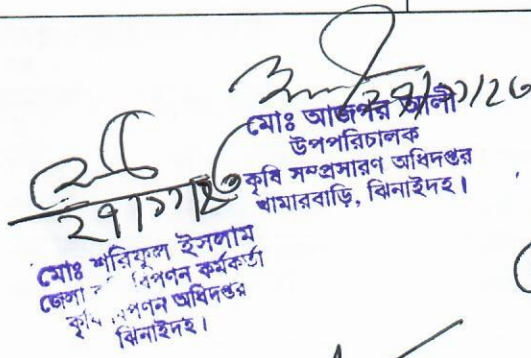 মোঃ আজগর আলী
উপপরিচালক
কৃষি সম্প্রসারণ অধিদপ্তর
খামারবাড়ি, ঝিনাইদহ।
২৭/১১/২৩
মোঃ শরিফুল ইসলাম
জেলা বিপণন কর্মকর্তা
কৃষি বিপণন অধিদপ্তর
ঝিনাইদহ।